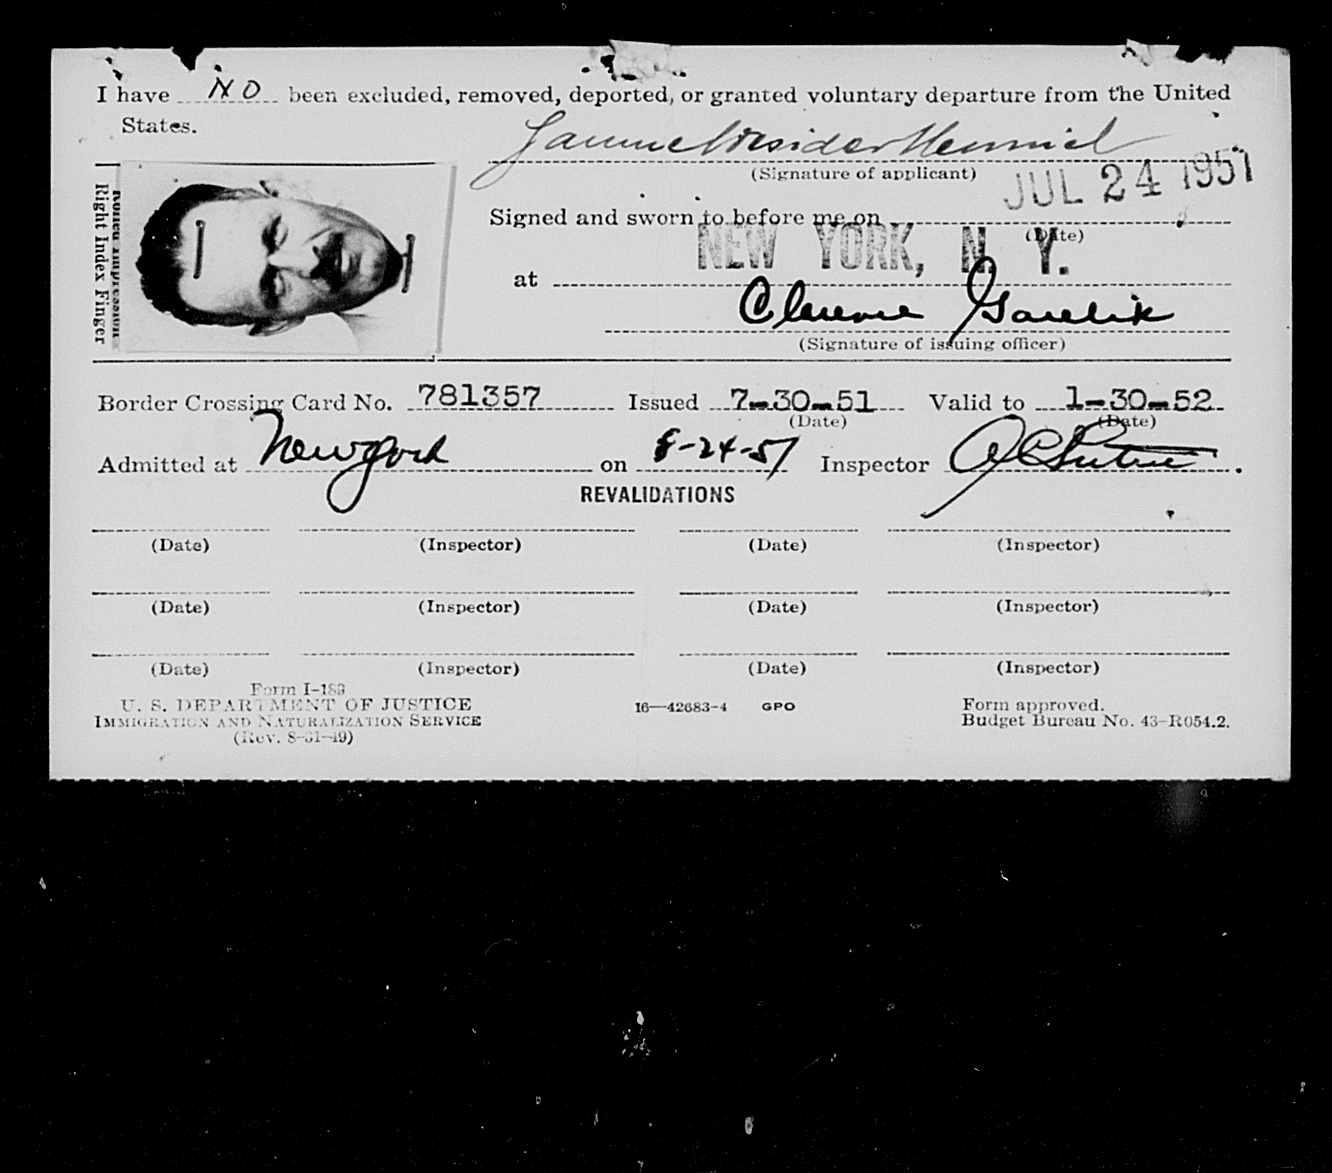 I have NO been excluded, removed, deported, or granted voluntary departure from the United
States.
(Signature of applicant)
JUL 24 1951
Signed and sworn to before me on
(Date)
NEW YORK, N. Y.
at
Clarence
(Signature of issuing officer)
Rolled Impression
Right Index Finger
Border Crossing Card No. 781357 Issued 7-30-51 Valid to 1-30-52
(Date) (Date)
Admitted at New York on 8-24-51 Inspector
REVALIDATIONS
(Date) (Inspector) (Date) (Inspector)
(Date) (Inspector) (Date) (Inspector)
(Date) (Inspector) (Date) (Inspector)
Form I-189
U. S. DEPARTMENT OF JUSTICE 16—42683-4 GPO Form approved.
IMMIGRATION AND NATURALIZATION SERVICE Budget Bureau No. 43-R054.2.
(Rev. 8-31-49)